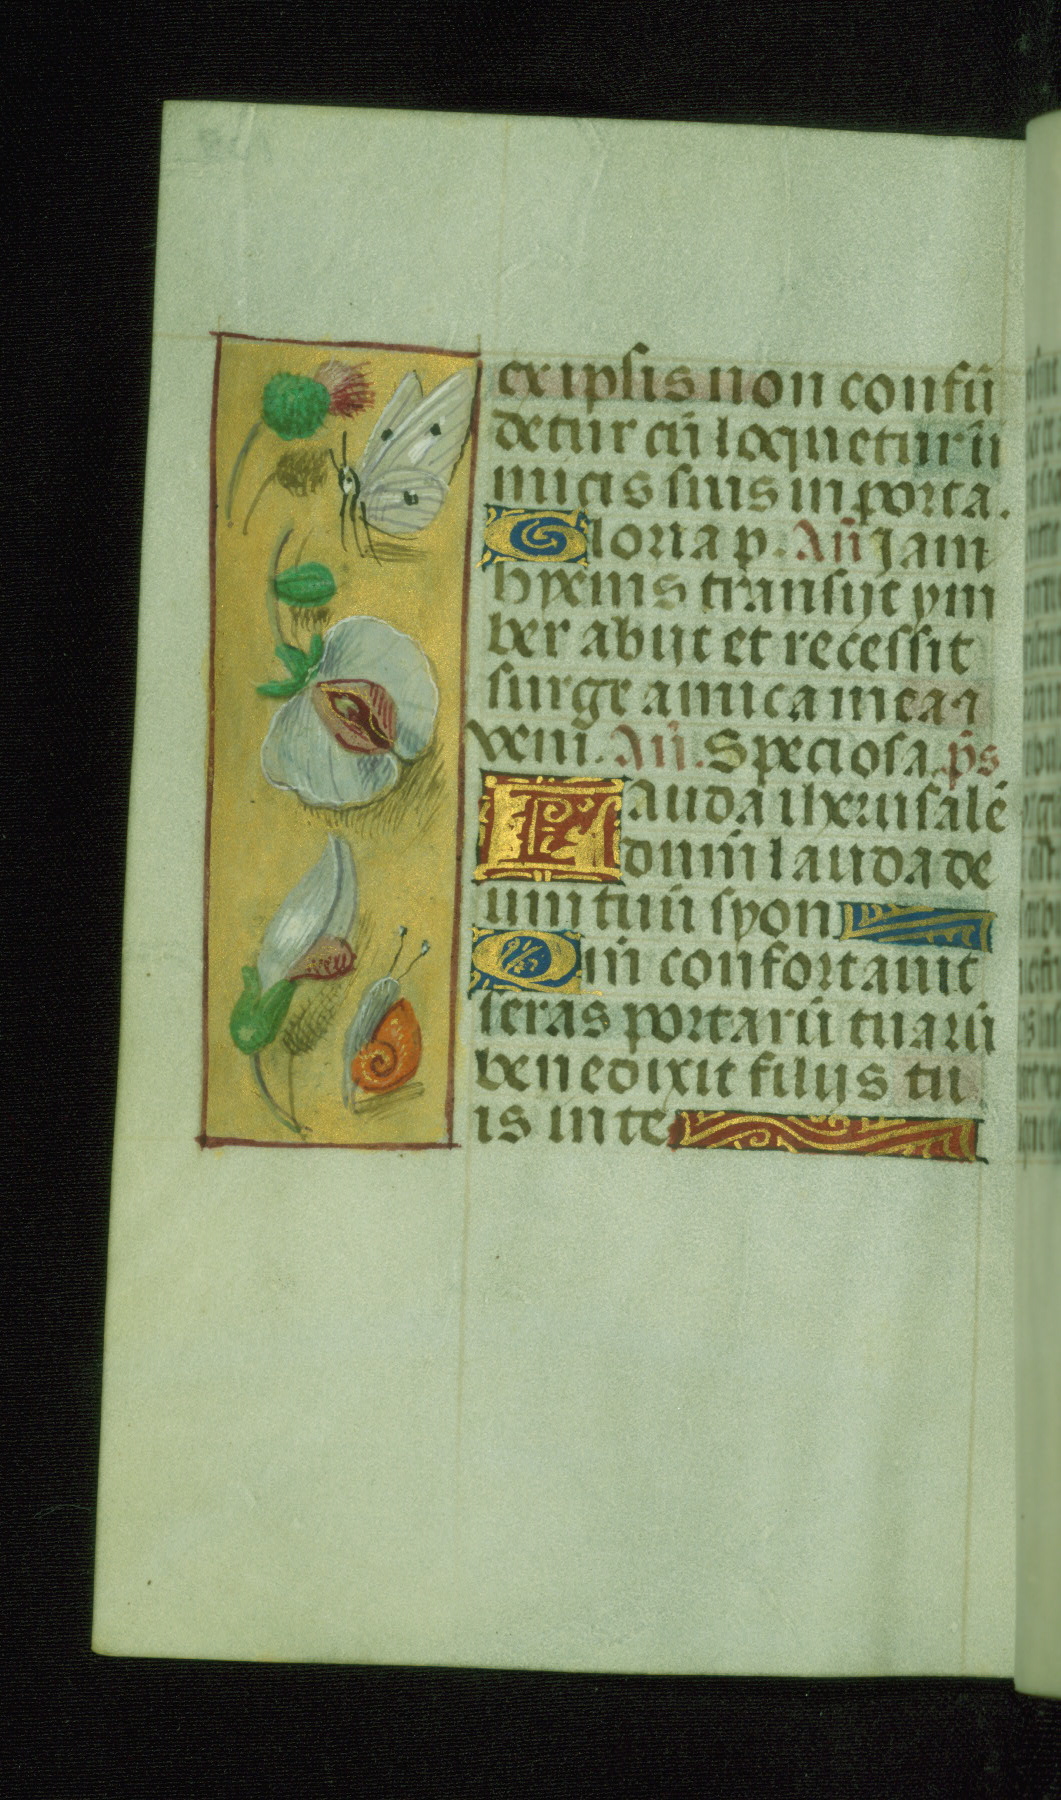 ex ipsis non confū
detur cū loquetur ī
micis suis in porta.
Gloria p. Añ Jam
hyems transijt ym
ber abijt et recessit
surge amica mea ⁊
veni. Añ. Speciosa. p̄s
Lauda iherusalē
dnm̄ lauda de
um tuū syon
Qm̄ confortauit
seras portarū tuarū
benedixit filijs tu
is in te